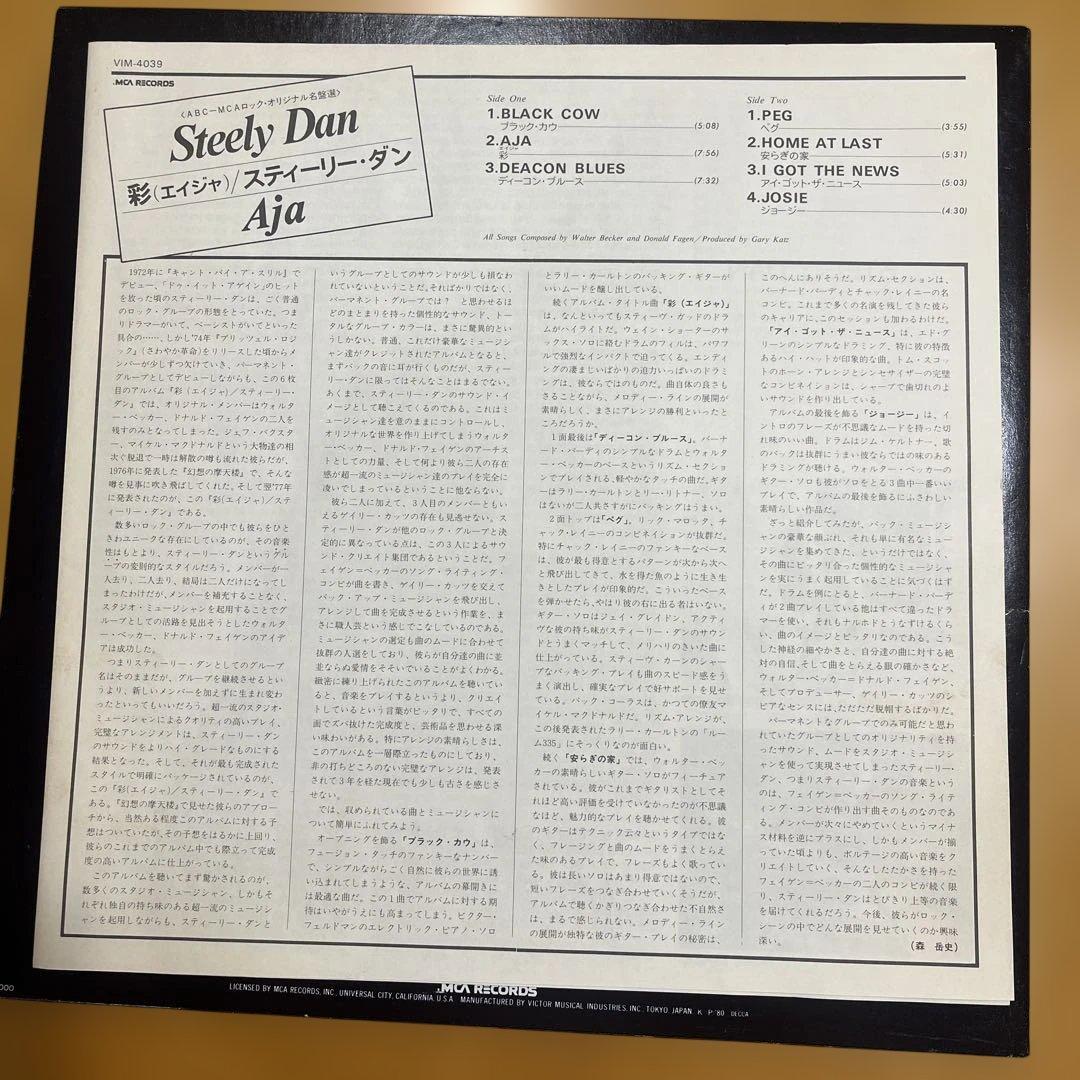 VIM-4039
MCA RECORDS
〈ABC−MCAロック・オリジナル名盤選〉
Steely Dan
彩(エイジャ)/スティーリー・ダン
Aja
Side One
1.BLACK COW
ブラック・カウ (5:08)
2.AJA
エイジャ
彩 (7:56)
3.DEACON BLUES
ディーコン・ブルース (7:32)
Side Two
1.PEG
ペグ (3:55)
2.HOME AT LAST
安らぎの家 (5:31)
3.I GOT THE NEWS
アイ・ゴット・ザ・ニュース (5:03)
4.JOSIE
ジョージー (4:30)
All Songs Composed by Walter Becker and Donald Fagen/Produced by Gary Katz
1972年に『キャント・バイ・ア・スリル』で
デビュー、「ドゥ・イット・アゲイン」のヒット
を放った頃のスティーリー・ダンは、ごく普通
のロック・グループの形態をとっていた。つま
りドラマーがいて、ベーシストがいてといった
具合の……、しかし'74年『プリッツェル・ロジ
ック』(さわやか革命)をリリースした頃からメ
ンバーが少しずつ欠けていき、パーマネント・
グループとしてデビューしながらも、この6枚
目のアルバム『彩(エイジャ)/スティーリー・
ダン』では、オリジナル・メンバーはウォルタ
ー・ベッカー、ドナルド・フェイゲンの二人を
残すのみとなってしまった。ジェフ・バクスタ
ー、マイケル・マクドナルドという大物達の相
次ぐ脱退で一時は解散の噂も流れた彼らだが、
1976年に発表した『幻想の摩天楼』で、そんな
噂を見事に吹き飛ばしてくれた。そして翌'77年
に発表されたのが、この『彩(エイジャ)/ステ
ィーリー・ダン』である。
数多いロック・グループの中でも彼らをひと
きわユニークな存在にしているのが、その音楽
性はもとより、スティーリー・ダンというグル
ープの変則的なスタイルだろう。メンバーが一
人去り、二人去り、結局は二人だけになってし
まったわけだが、メンバーを補充することなく、
スタジオ・ミュージシャンを起用することでグ
ループとしての活路を見出そうとしたウォルタ
ー・ベッカー、ドナルド・フェイゲンのアイデ
アは成功した。
つまりスティーリー・ダンとしてのグループ
名はそのままだが、グループを継続させるとい
うより、新しいメンバーを加えずに生まれ変わ
ったといってもいいだろう。超一流のスタジオ・
ミュージシャンによるクオリティの高いプレイ、
完璧なアレンジメントは、スティーリー・ダン
のサウンドをよりハイ・グレードなものにする
結果となった。そして、それが最も完成された
スタイルで明確にパッケージされているのが、
この『彩(エイジャ)/スティーリー・ダン』で
ある。『幻想の摩天楼』で見せた彼らのアプロー
チから、当然ある程度このアルバムに対する予
想はついていたが、その予想をはるかに上回り、
彼らのこれまでのアルバム中でも際立って完成
度の高いアルバムに仕上がっている。
このアルバムを聴いてまず驚かされるのが、
数多くのスタジオ・ミュージシャン、しかもそ
れぞれ独自の持ち味のある超一流のミュージシ
ャンを起用しながらも、スティーリー・ダンと
いうグループとしてのサウンドが少しも損なわ
れていないということだ。そればかりではなく、
パーマネント・グループでは? と思わせるほ
どのまとまりを持った個性的なサウンド、トー
タルなグループ・カラーは、まさに驚異的とい
うしかない。普通、これだけ豪華なミュージシ
ャン達がクレジットされたアルバムとなると、
まずバックの音に耳が行くものだが、スティー
リー・ダンに限ってはそんなことはまるでない。
あくまで、スティーリー・ダンのサウンド・イ
メージとして聴こえてくるのである。これはミ
ュージシャン達を意のままにコントロールし、
オリジナルな世界を作り上げてしまうウォルタ
ー・ベッカー、ドナルド・フェイゲンのアーチ
ストとしての力量、そして何より彼ら二人の存在
感が超一流のミュージシャン達のプレイを完全に
凌いでしまっているということに他ならない。
彼ら二人に加えて、3人目のメンバーともい
えるゲイリー・カッツの存在も見逃せない。ス
ティーリー・ダンが他のロック・グループと決
定的に異なっている点は、この3人によるサウ
ンド・クリエイト集団であるということだ。フ
ェイゲン=ベッカーのソング・ライティング・
コンビが曲を書き、ゲイリー・カッツを交えて
バック・アップ・ミュージシャンを飛び出し、
アレンジして曲を完成させるという作業を、ま
さに職人芸という感じでこなしているのである。
ミュージシャンの選定も曲のムードに合わせて
抜群の人選をしており、彼らが自分達の曲に並
並ならぬ愛情をそそいでいることがよくわかる。
緻密に練り上げられたこのアルバムを聴いてい
ると、音楽をプレイするというより、クリエイト
しているという言葉がピッタリで、すべての
面でズバ抜けた完成度と、芸術品を思わせる深
い味わいがある。特にアレンジの素晴らしさは、
このアルバムを一層際立ったものにしており、
非の打ちどころのない完璧なアレンジは、発表
されて3年を経た現在でも少しも古さを感じさ
せない。
では、収められている曲とミュージシャンに
ついて簡単にふれてみよう。
オープニングを飾る「ブラック・カウ」は、
フュージョン・タッチのファンキーなナンバー
で、シンプルながらごく自然に彼らの世界に誘
い込まれてしまうような、アルバムの幕開きに
は最適な曲だ。この1曲でアルバムに対する期
待はいやがうえにも高まってしまう。ビクター・
フェルドマンのエレクトリック・ピアノ・ソロ
とラリー・カールトンのバッキング・ギターが
いいムードを醸し出している。
続くアルバム・タイトル曲「彩(エイジャ)」
は、なんといってもスティーヴ・ガッドのドラ
ムがハイライトだ。ウェイン・ショーターのサ
ックス・ソロに絡むドラムのフィルは、パワフ
ルで強烈なインパクトで迫ってくる。エンディ
ングの凄まじいばかりの迫力いっぱいのドラミ
ングは、彼ならではのものだ。曲自体の良さも
さることながら、メロディー・ラインの展開が
素晴らしく、まさにアレンジの勝利といったと
ころだろうか。
1面最後は「ディーコン・ブルース」。バーナ
ード・パーディのシンプルなドラムとウォルタ
ー・ベッカーのベースというリズム・セクショ
ンでプレイされる、軽やかなタッチの曲だ。ギタ
ーはラリー・カールトンとリー・リトナー、ソロ
はないが二人共さすがにバッキングはうまい。
2面トップは「ペグ」。リック・マロッタ、チ
ャック・レイニーのコンビネイションが抜群だ。
特にチャック・レイニーのファンキーなベース
は、彼が最も得意とするパターンが次から次へ
と飛び出してきて、水を得た魚のように生き生
きとしたプレイが印象的だ。こういったベース
を弾かせたら、やはり彼の右に出る者はいない。
ギター・ソロはジェイ・グレイドン、アクティ
ヴな彼の持ち味がスティーリー・ダンのサウン
ドとうまくマッチして、メリハリのきいた曲に
仕上がっている。スティーヴ・カーンのシャー
プなバッキング・プレイも曲のスピード感をう
まく演出し、確実なプレイで好サポートを見せ
ている。バック・コーラスは、かつての僚友マ
イケル・マクドナルドだ。リズム・アレンジが、
この後発表されたラリー・カールトンの「ルー
ム335」にそっくりなのが面白い。
続く「安らぎの家」では、ウォルター・ベッ
カーの素晴らしいギター・ソロがフィーチュア
されている。彼がこれまでギタリストとしてそ
れほど高い評価を受けていなかったのが不思議
なほど、魅力的なプレイを聴かせてくれる。彼
のギターはテクニック云々というタイプではな
く、フレージングと曲のムードをうまくとらえ
た味のあるプレイで、フレーズもよく歌ってい
る。彼は長いソロはあまり得意ではないので、
短いフレーズをつなぎ合わせていくそうだが、
アルバムで聴くかぎりつなぎ合わせた不自然さ
は、まるで感じられない。メロディー・ライン
の展開が独特な彼のギター・プレイの秘密は、
このへんにありそうだ。リズム・セクションは、
バーナード・パーディとチャック・レイニーの名
コンビ。これまで多くの名演を残してきた彼ら
のキャリアに、このセッションも加わるわけだ。
「アイ・ゴット・ザ・ニュース」は、エド・グ
リーンのシンプルなドラミング、特に彼の特徴
あるハイ・ハットが印象的な曲。トム・スコッ
トのホーン・アレンジとシンセサイザーの完璧
なコンビネイションは、シャープで歯切れのよ
いサウンドを作り出している。
アルバムの最後を飾る「ジョージー」は、イ
ントロのフレーズが不思議なムードを持った切
れ味のいい曲。ドラムはジム・ケルトナー、歌
のバックは抜群にうまい彼ならではの味のある
ドラミングが聴ける。ウォルター・ベッカーの
ギター・ソロも彼がソロをとる3曲中一番いい
プレイで、アルバムの最後を飾るにふさわしい
素晴らしい作品だ。
ざっと紹介してみたが、バック・ミュージシ
ャンの豪華な顔ぶれ、それも単に有名なミュー
ジシャンを集めてきた、というだけではなく、
その曲にピッタリ合った個性的なミュージシャ
ンを実にうまく起用していることに気づくはず
だ。ドラムを例にとると、バーナード・パーデ
ィが2曲プレイしている他はすべて違ったドラ
マーを使い、それもナルホドとうなずけるくら
い、曲のイメージとピッタリなのである。こう
した神経の細やかさと、自分達の曲に対する絶
対の自信、そして曲をとらえる眼の確かさなど、
ウォルター・ベッカー=ドナルド・フェイゲン、
そしてプロデューサー、ゲイリー・カッツのシ
ビアなセンスには、ただただ脱帽するばかりだ。
パーマネントなグループでのみ可能だと思わ
れていたグループとしてのオリジナリティを持
ったサウンド、ムードをスタジオ・ミュージシ
ャンを使って実現させてしまったスティーリー・
ダン、つまりスティーリー・ダンの音楽という
のは、フェイゲン=ベッカーのソング・ライテ
ィング・コンビが作り出す曲そのものなのであ
る。メンバーが次々にやめていくというマイナ
ス材料を逆にプラスにし、しかもメンバーが揃
っていた頃よりも、ボルテージの高い音楽をク
リエイトしていく、そんなしたたかさを持った
フェイゲン=ベッカーの二人のコンビが続く限
り、スティーリー・ダンはとびきり上等の音楽
を届けてくれるだろう。今後、彼らがロック・
シーンの中でどんな展開を見せていくのか興味
深い。
(森 岳史)
MCA RECORDS
LICENSED BY MCA RECORDS, INC., UNIVERSAL CITY, CALIFORNIA, U.S.A. MANUFACTURED BY VICTOR MUSICAL INDUSTRIES, INC., TOKYO, JAPAN. K P.'80 DECCA